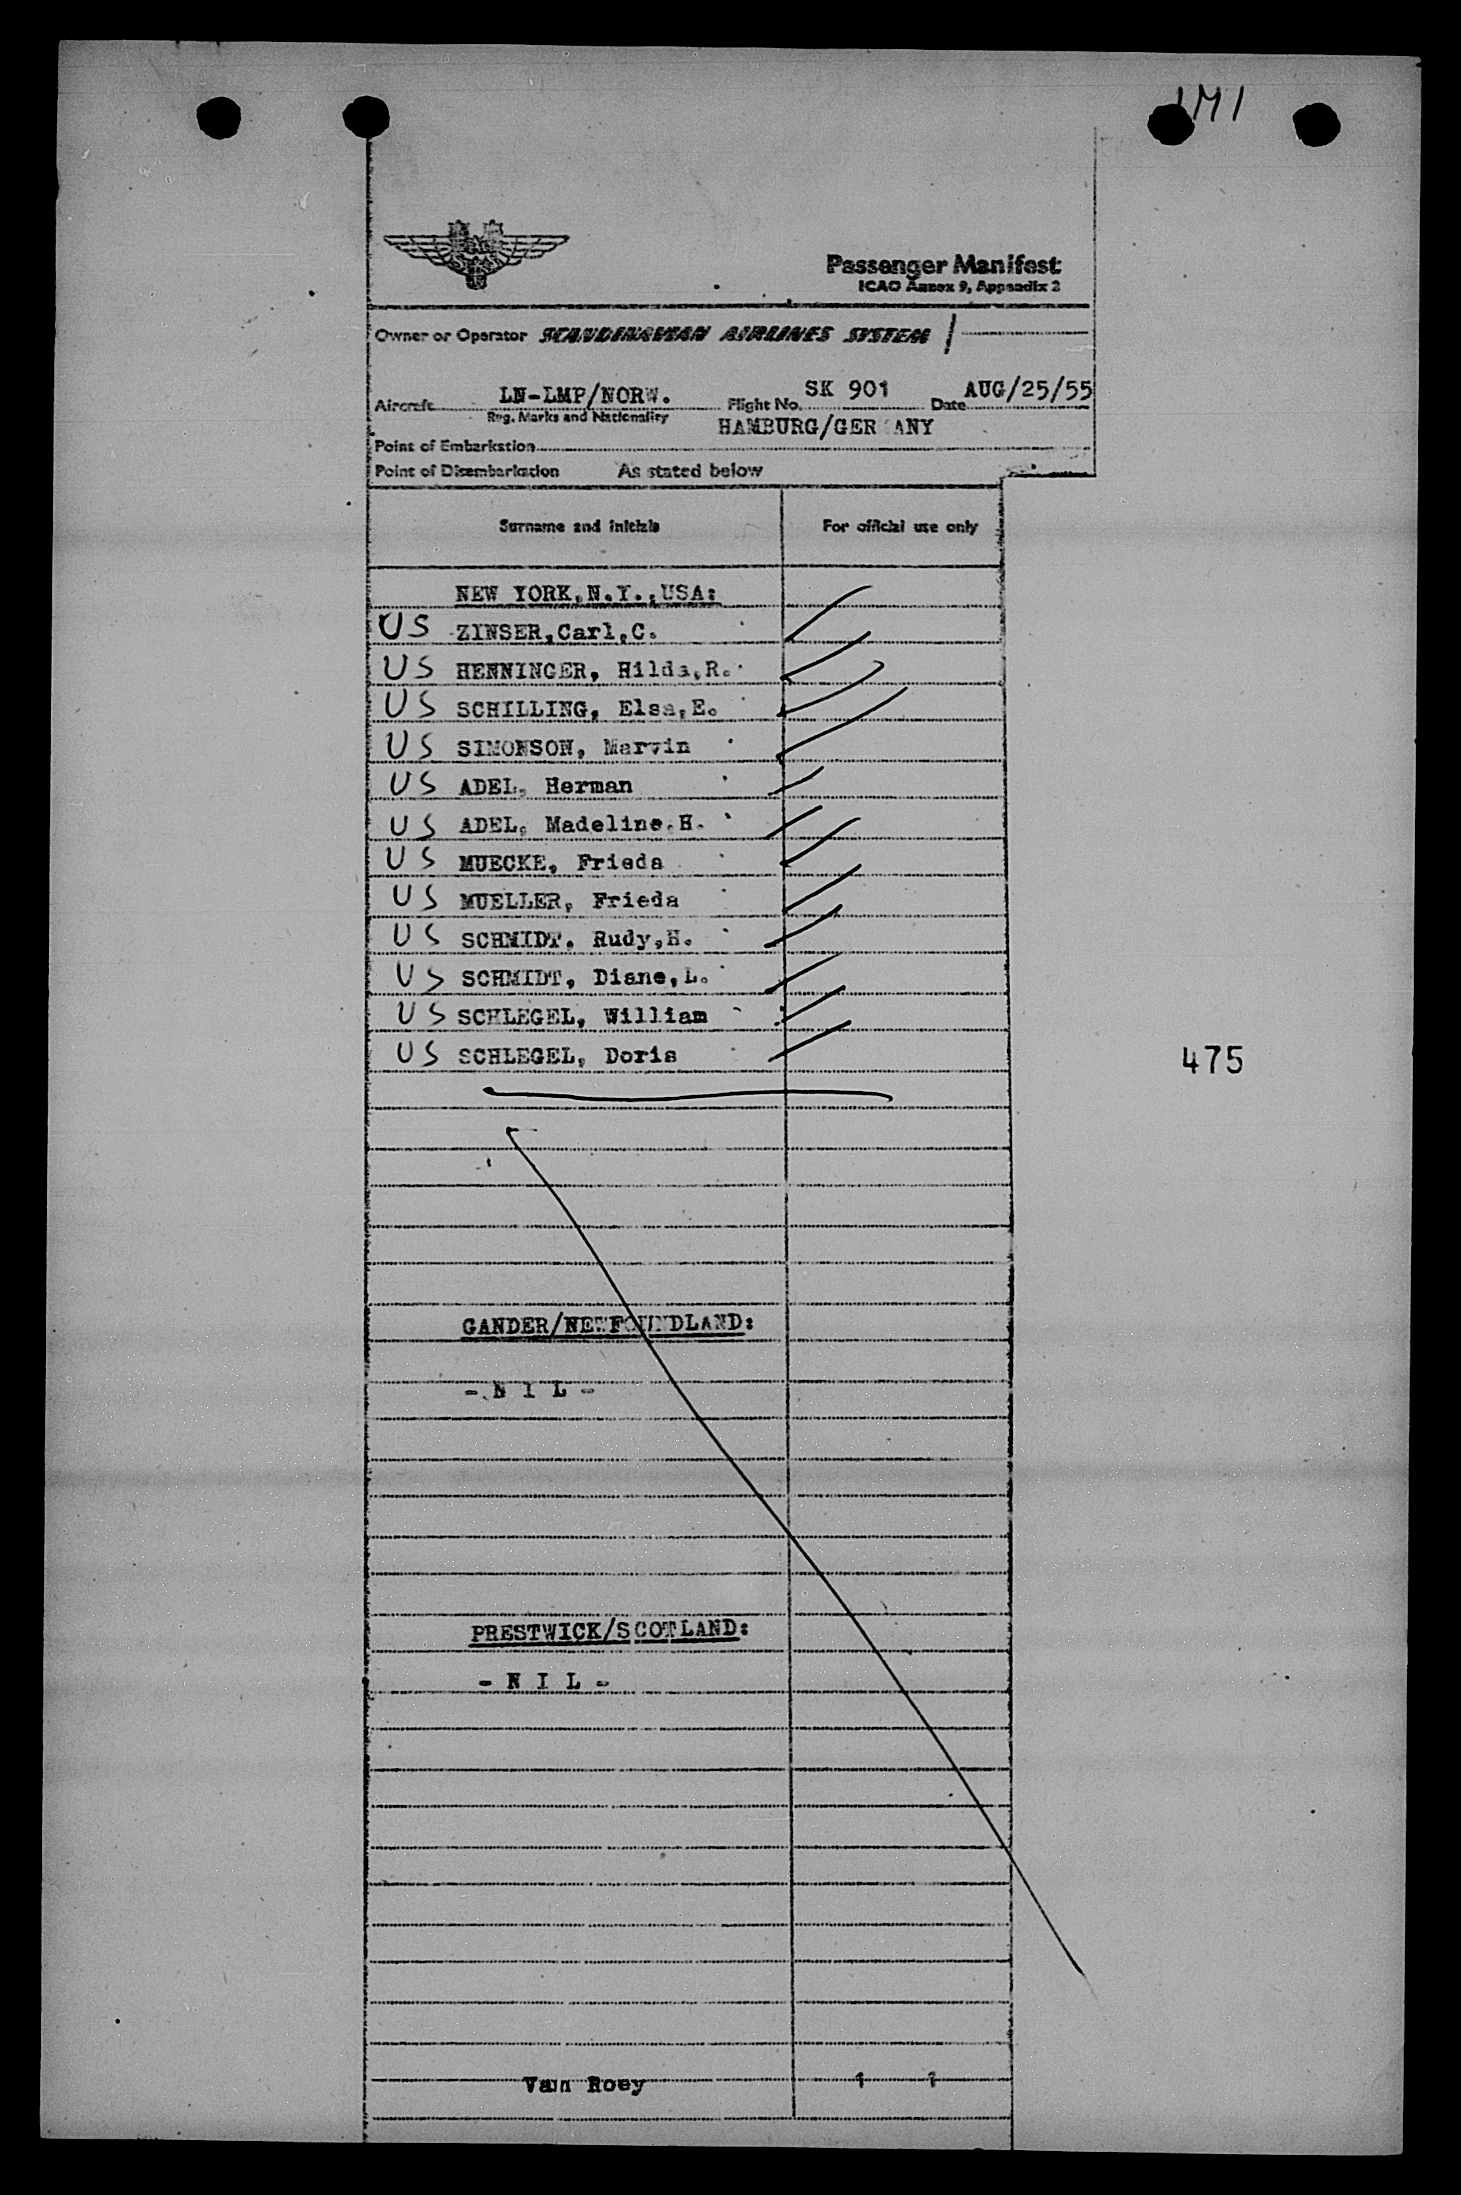 1M1
Passenger Manifest
ICAO Annex 9, Appendix 2
Owner or Operator SCANDINAVIAN AIRLINES SYSTEM
Aircraft LN-LMP/NORW. Flight No. SK 901 Date AUG/25/55
Reg. Marks and Nationality
HAMBURG/GERMANY
Point of Embarkation
Point of Disembarkation As stated below
Surname and initials For official use only
NEW YORK,N.Y.,USA:
US ZINSER,Carl,C.
US HENNINGER, Hilda,R.
US SCHILLING, Elsa,E.
US SIMONSON, Marvin
US ADEL, Herman
US ADEL, Madeline.H.
US MUECKE, Frieda
US MUELLER, Frieda
US SCHMIDT. Rudy,H.
US SCHMIDT, Diane,L.
US SCHLEGEL, William
US SCHLEGEL, Doris
475
GANDER/NEWFOUNDLAND:
- N I L -
PRESTWICK/SCOTLAND:
- N I L -
Van Roey 1 1